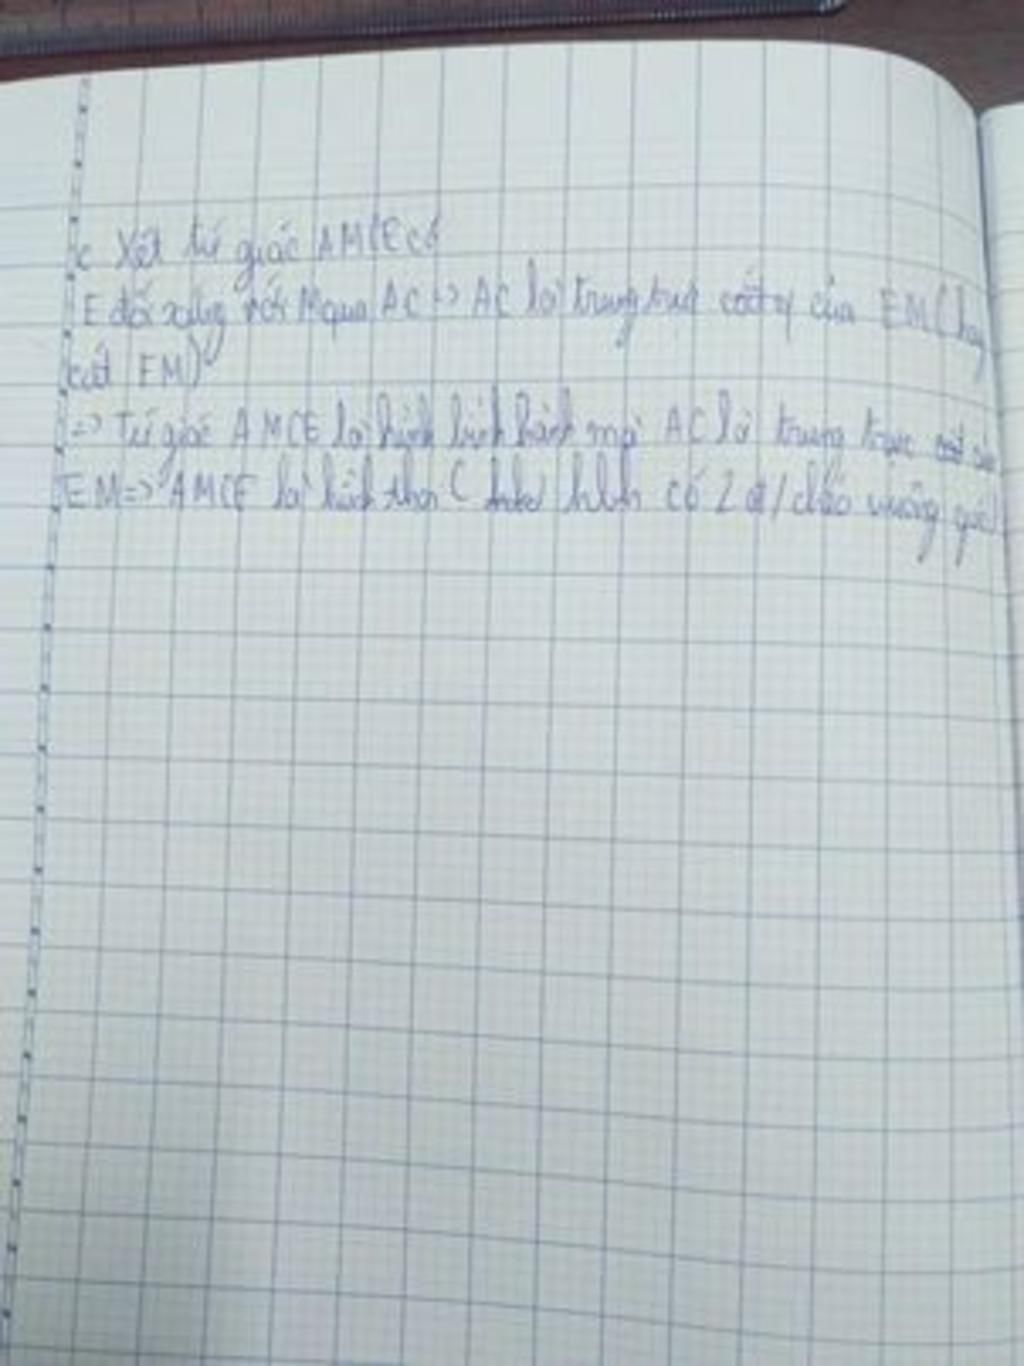 c Xét tứ giác AMCE có
E đối xứng với M qua AC => AC là trung trực của EM (hay
cắt EM)
=> Tứ giác AMCE là hình bình hành mà AC là trung trực của
EM => AMCE là hình thoi ( hbh có 2 đ/chéo vuông góc)